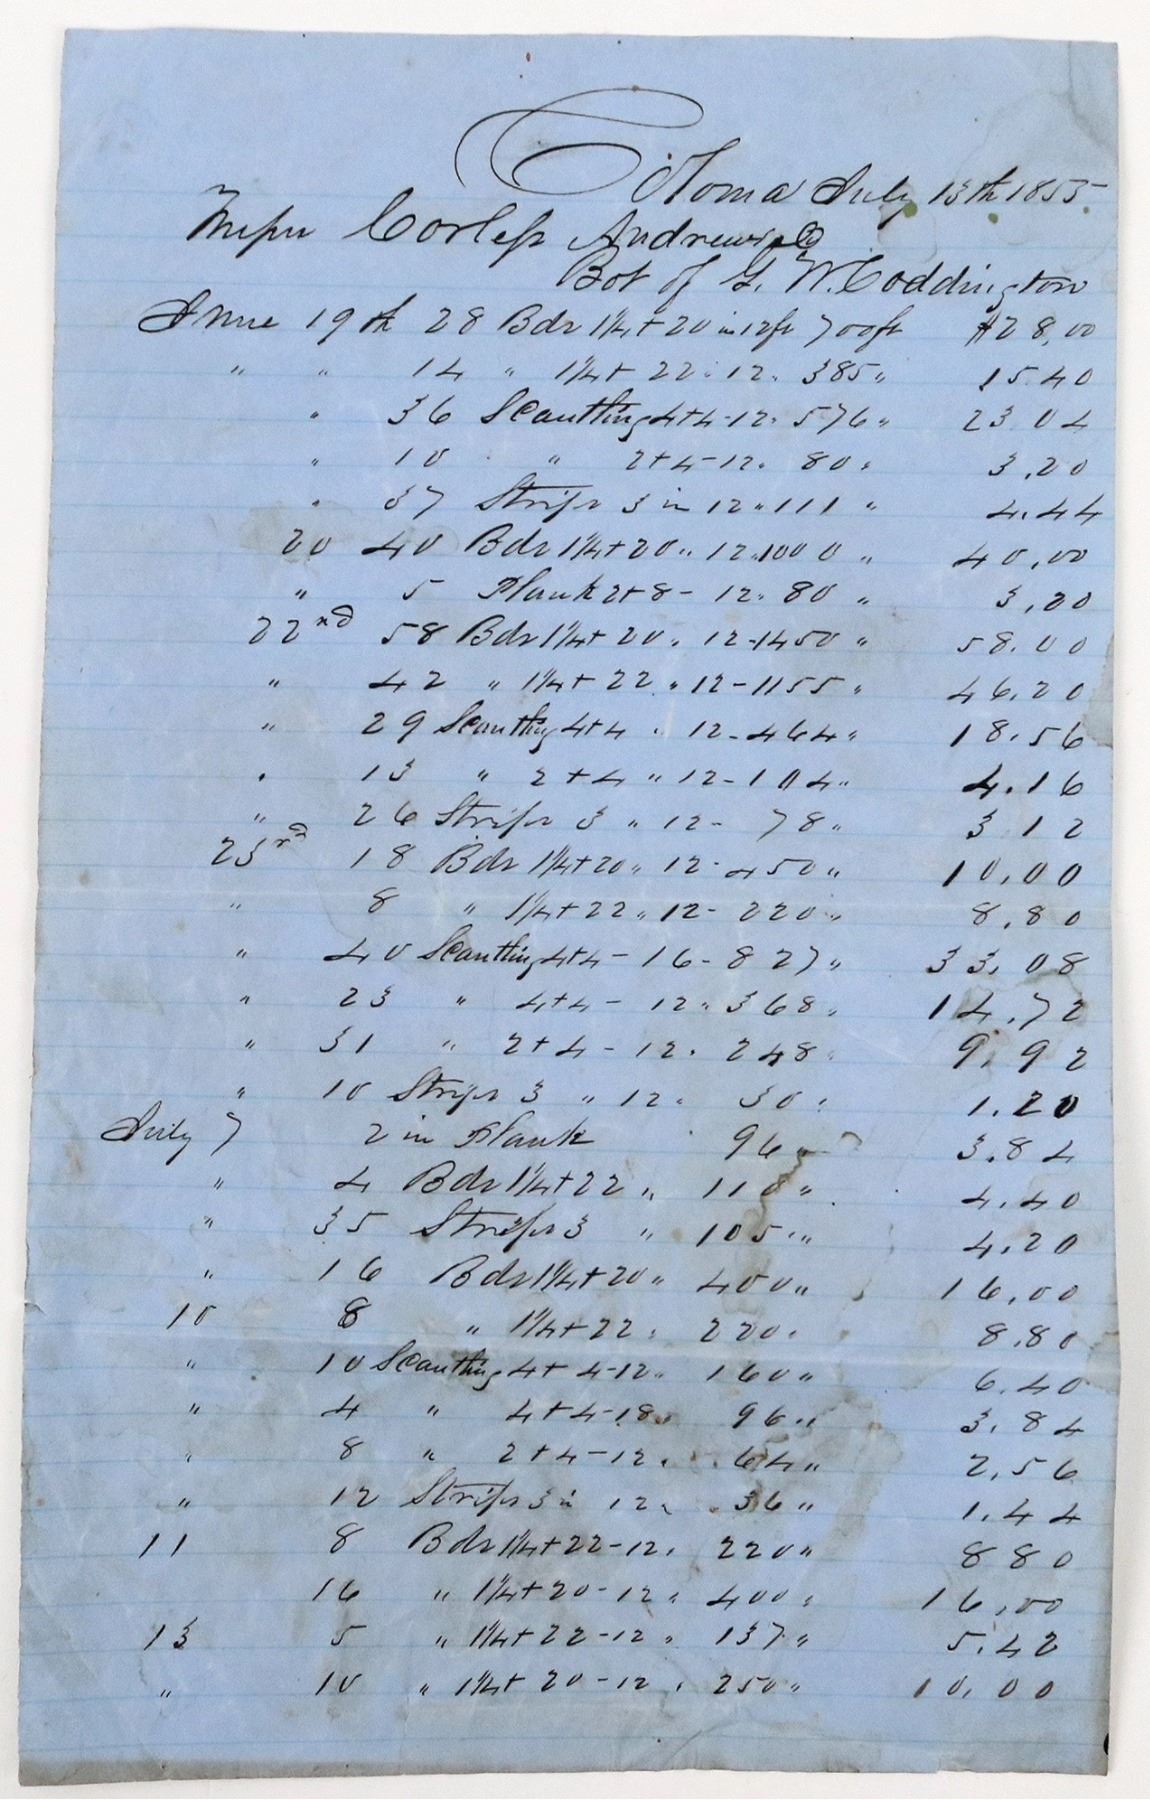 Coloma July 13th 1855
Messrs Corless Andrews & Co
Bot of G. W. Coddington
June 19th 28 Bds 1¼+20 in 12ft 700ft $28,00
" " 14 " 1¼+22 " 12 " 385 " 15.40
" 36 Scantling 4+4-12 " 576 " 23.04
" 10 " 2+4-12 " 80 " 3.20
" 37 Strips 3 in 12 " 111 " 4.44
20 40 Bds 1¼+20 " 12 " 1000 " 40.00
" 5 Plank 2+8-12 " 80 " 3,20
22nd 58 Bds 1¼+20 " 12-1450 " 58.00
" 42 " 1¼+22 " 12-1155 " 46.20
" 29 Scantling 4+4 " 12-464 " 18.56
" 13 " 2+4 " 12-104 " 4.16
" 26 Strips 3 " 12- 78 " 3 12
23rd 18 Bds 1¼+20 " 12-450 " 10,00
" 8 " 1¼+22 " 12-220 " 8,80
" 40 Scantling 4+4-16-827 " 33.08
" 23 " 4+4-12 " 368 " 14.72
" 31 " 2+4-12 " 248 " 9.92
" 10 Strips 3 " 12 " 30 " 1.20
July 7 2 in Plank 96 " 3.84
" 4 Bds 1¼+22 " 110 " 4.40
" 35 Strips 3 " 105 " 4.20
" 16 Bds 1¼+20 " 400 " 16,00
10 8 " 1¼+22 " 220 " 8.80
" 10 Scantling 4+4-12 " 160 " 6.40
" 4 " 4+4-18 " 96 " 3.84
" 8 " 2+4-12 " 64 " 2,56
" 12 Strips 3 in 12 " 36 " 1.44
11 8 Bds 1¼+22-12 " 220 " 8 80
16 " 1¼+20-12 " 400 " 16,00
13 5 " 1¼+22-12 " 137 " 5.42
" 10 " 1¼+20-12 " 250 " 10.00